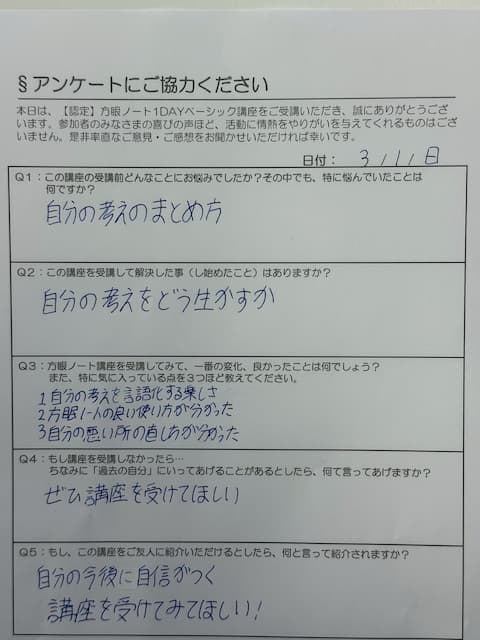 §アンケートにご協力ください
本日は、【認定】方眼ノート1DAYベーシック講座をご受講いただき、誠にありがとうござ
います。参加者のみなさまの喜びの声ほど、活動に情熱をやりがいを与えてくれるものはござ
いません。是非率直なご意見・ご感想をお聞かせいただければ幸いです。
日付： 3/11日
Q1：この講座の受講前どんなことにお悩みでしたか？その中でも、特に悩んでいたことは
何ですか？
自分の考えのまとめ方
Q2：この講座を受講して解決した事（し始めたこと）はありますか？
自分の考えをどう生かすか
Q3：方眼ノート講座を受講してみて、一番の変化、良かったことは何でしょう？
また、特に気に入っている点を3つほど教えてください。
1 自分の考えを言語化する楽しさ
2 方眼ノートの良い使い方が分かった
3 自分の悪い所の直し方が分かった
Q4：もし講座を受講しなかったら…
ちなみに「過去の自分」にいってあげることがあるとしたら、何て言ってあげますか？
ぜひ講座を受けてほしい
Q5：もし、この講座をご友人に紹介いただけるとしたら、何と言って紹介されますか？
自分の今後に自信がつく
講座を受けてみてほしい！